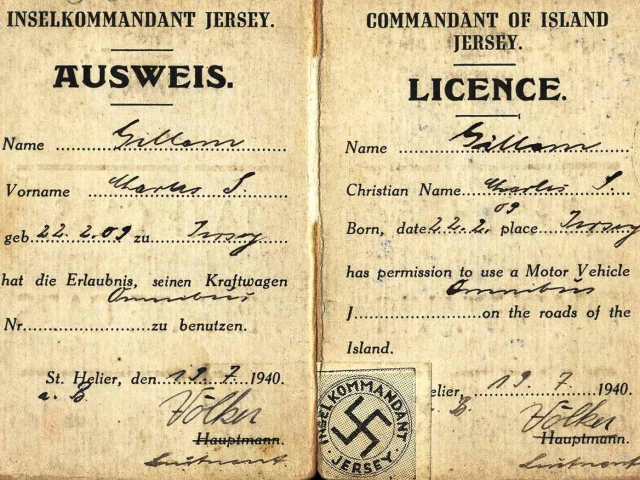 INSELKOMMANDANT JERSEY.
AUSWEIS.
Name Gillam
Vorname Charles S.
geb. 22. 2. 09 zu Jersey
hat die Erlaubnis, seinen Kraftwagen
Omnibus
Nr. zu benutzen.
St. Helier, den 19. 7 1940.
Völker
Hauptmann.
Leutnant
COMMANDANT OF ISLAND
JERSEY.
LICENCE.
Name Gillam
Christian Name Charles S.
09
Born, date 22. 2. place Jersey
has permission to use a Motor Vehicle
Omnibus
J. on the roads of the
Island.
elier, 19. 7 1940.
Völker
Hauptmann.
Leutnant
INSELKOMMANDANT
JERSEY.